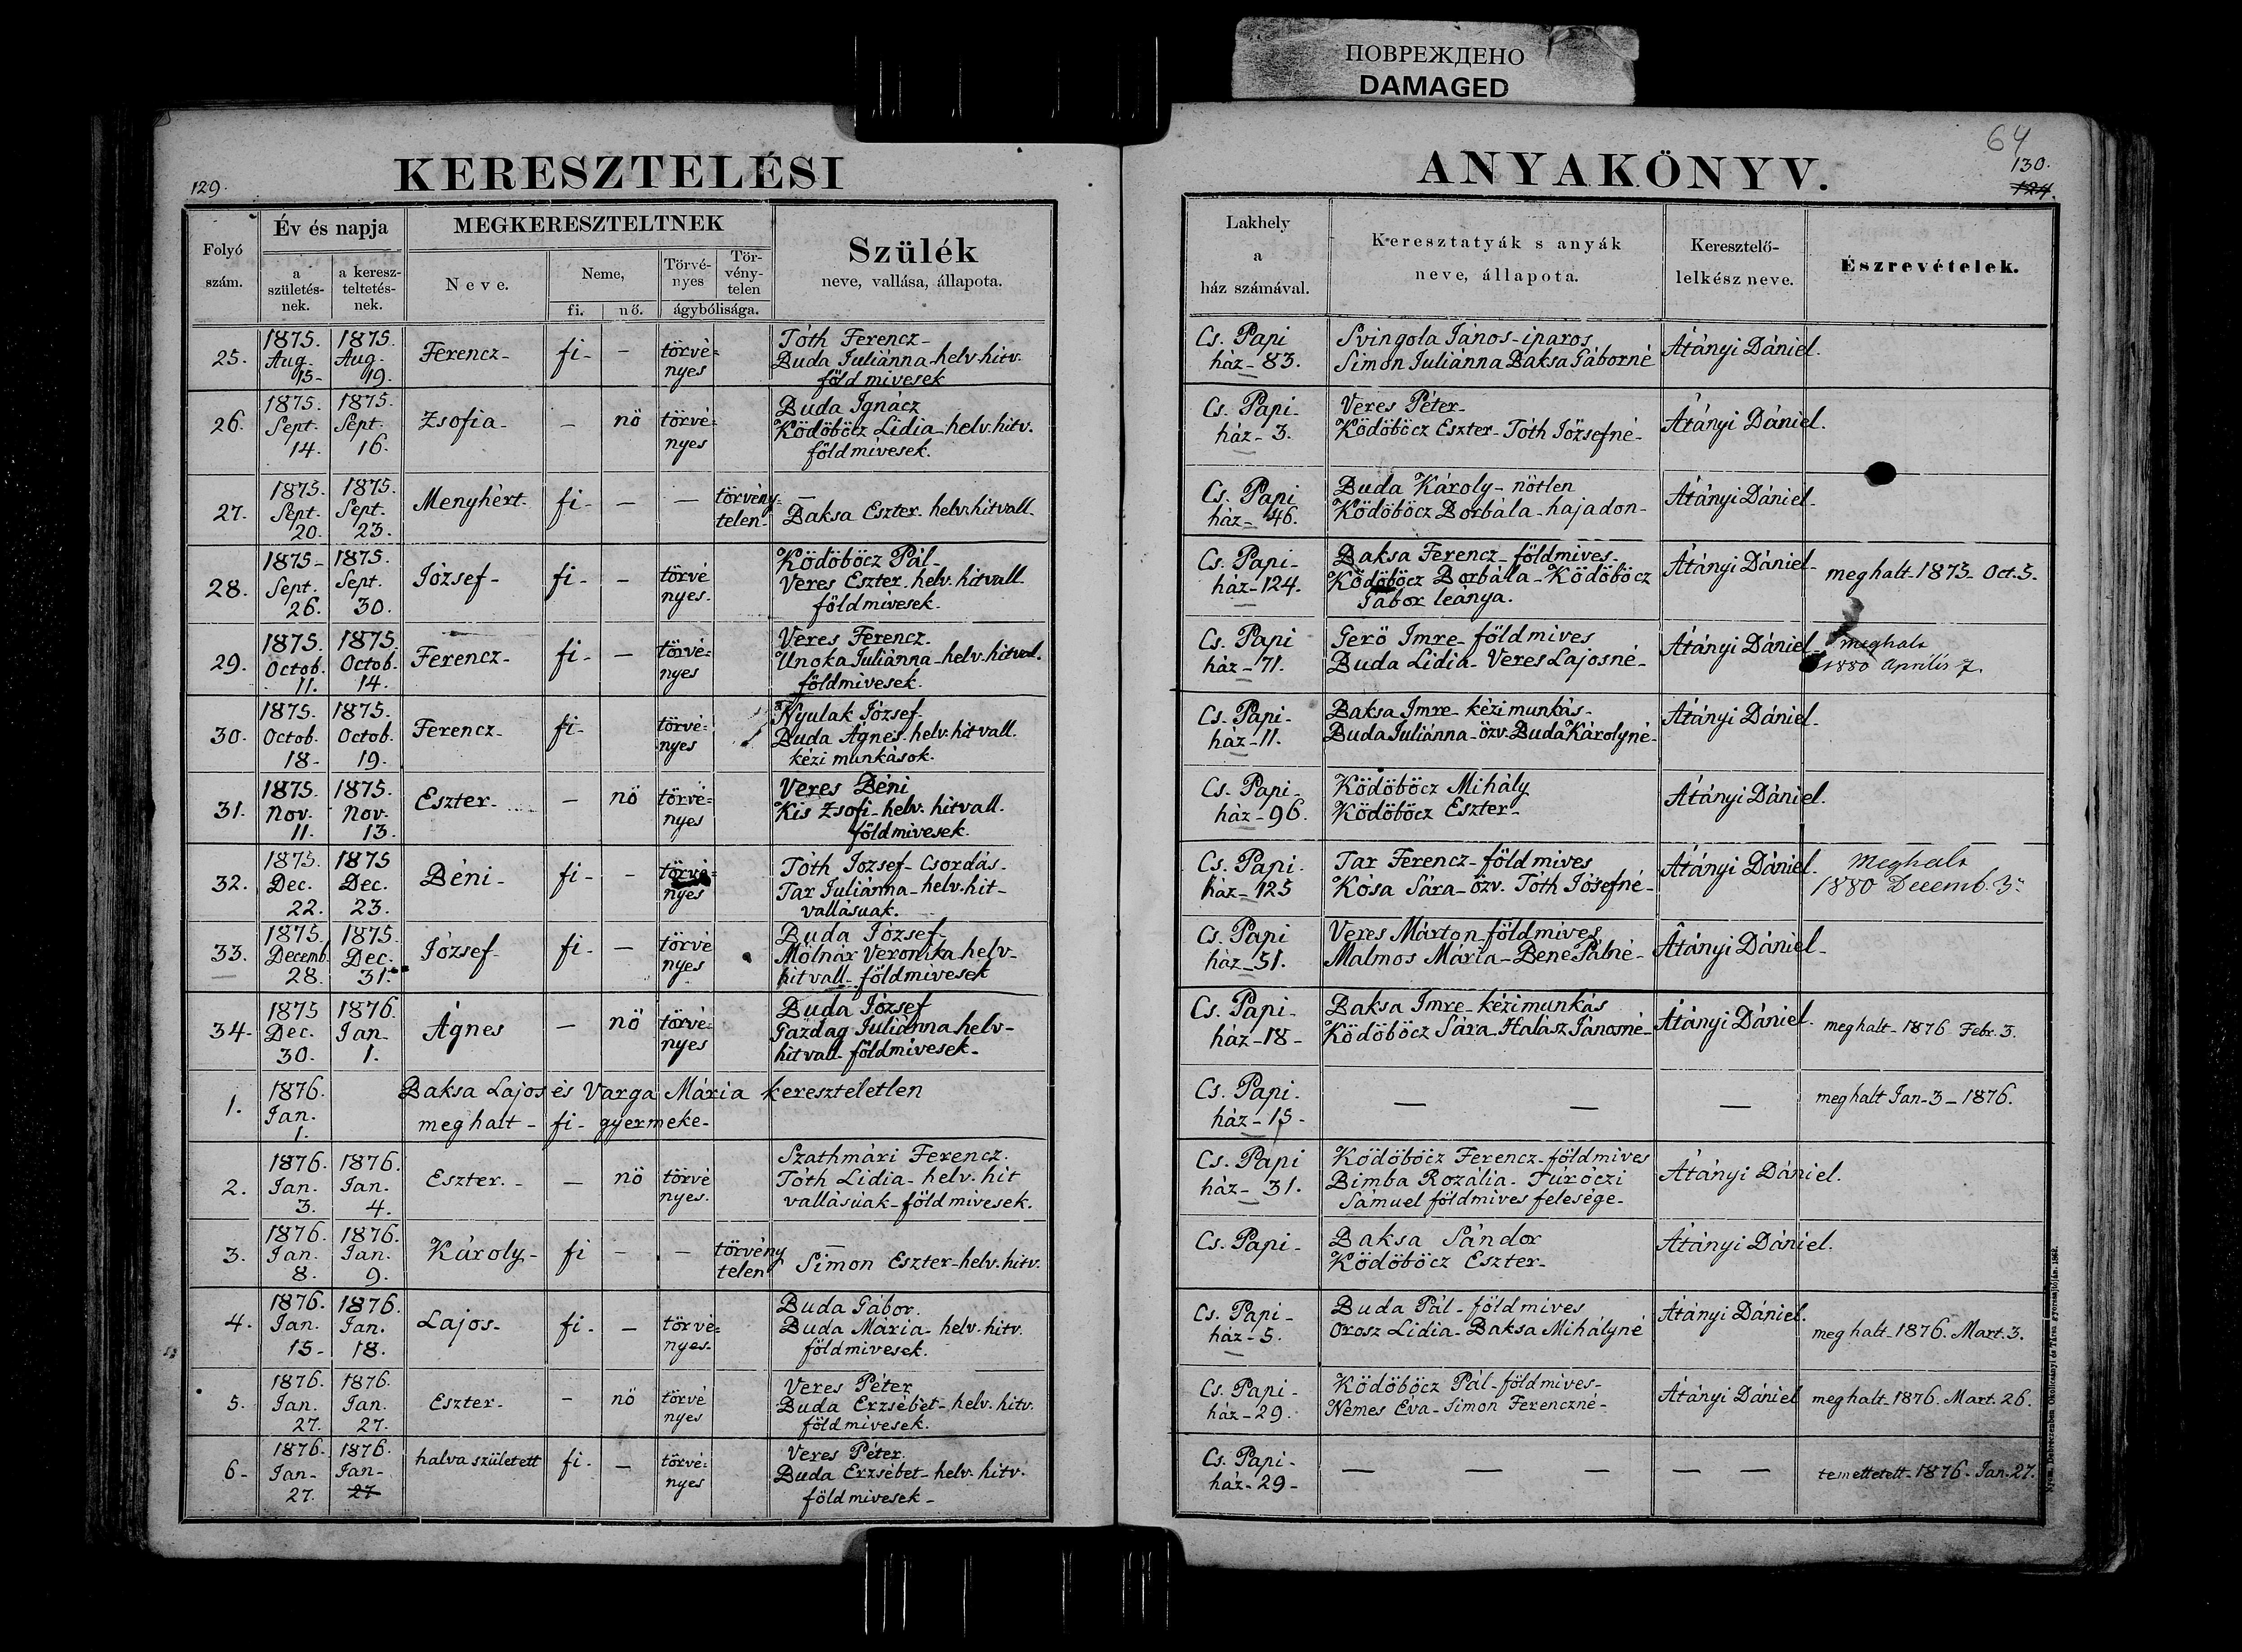 ПОВРЕЖДЕНО
DAMAGED
64
129.
KERESZTELÉSI
ANYAKÖNYV.
130.
124.
Folyó szám.
Év és napja
a születés-nek.
a keresz-teltetés-nek.
MEGKERESZTELTNEK
Neve.
Neme,
fi.
nő.
Törvé-nyes
Tör-vény-telen
ágybólisága.
Szülék
neve, vallása, állapota.
Lakhely
a
ház számával.
Keresztatyák s anyák
neve, állapota.
Keresztelő-
lelkész neve.
Észrevételek.
25. 1875. Aug. 15- 1875. Aug. 19. Ferencz- fi- - törvé=nyes
Tóth Ferencz-
Buda Juliánna-helv. hitv.
földmivesek
Cs. Papi ház-83.
Svingola János-iparos
Simon Juliánna Baksa Gáborné
Átányi Dániel.
26. 1875. Sept. 14. 1875. Sept. 16. Zsofia- - nö törvé=nyes
Buda Ignácz
Ködöböcz Lidia-helv. hitv.
földmivesek.
Cs. Papi- ház-3.
Veres Péter-
Ködöböcz Eszter-Tóth Józsefné-
Átányi Dániel.
27. 1875. Sept. 20. 1875. Sept. 23. Menyhért- fi- - - törvény=telen-
-
Baksa Eszter-helv. hitvall-
Cs. Papi ház-46.
Buda Károly-nötlen
Ködöböcz Borbála-hajadon-
Átányi Dániel-
28. 1875- Sept. 26. 1875. Sept. 30. József- fi- - törvé nyes.
Ködöböcz Pál-
Veres Eszter-helv. hitvall-
földmivesek.
Cs. Papi- ház-124.
Baksa Ferencz-földmives-
Ködöböcz Borbála-Ködöböcz
Gábor leánya.
Átányi Dániel-
meghalt-1875-Oct. 5.
29. 1875. Octob. 11. 1875. Octob. 14. Ferencz- fi- - törvé=nyes
Veres Ferencz-
Unoka Juliánna-helv. hitval.
földmivesek.
Cs. Papi ház-71.
Gerö Imre-földmives
Buda Lidia-Veres Lajosné-
Átányi Dániel-
meghalt
1880 Április 7.
30. 1875. Octob. 18- 1875. Octob. 19. Ferencz- fi- törvé=nyes
Nyulak József-
Buda Ágnes-helv. hitvall.
kézi munkások.
Cs. Papi- ház-11.
Baksa Imre-kézimunkás-
Buda Juliánna-özv. Buda Károlyné-
Átányi Dániel-
31. 1875. Nov. 11. 1875. Nov. 13. Eszter- - nö törvé=nyes
Veres Béni
Kis Zsofi-helv. hitvall.
földmivesek.
Cs. Papi- ház-96.
Ködöböcz Mihály
Ködöböcz Eszter-
Átányi Dániel.
32. 1875. Dec. 22. 1875 Dec. 23. Béni- fi- - törvé=nyes
Tóth József-Csordás-
Tar Juliánna-helv. hit-
vallásuak.
Cs. Papi- ház-125
Tar Ferencz-földmives
Kósa Sára-özv. Tóth Jósefné-
Átányi Dániel.
Meghalt
1880 Decemb. 3.
33. 1875. Decemb. 28. 1875. Dec. 31. József- fi- - törvé nyes
Buda József-
Mólnár Veronika helv-
hitvall-földmivesek
Cs. Papi ház-51.
Veres Márton-földmives
Malmos Mária-Bene Pálné-
Átányi Dániel-
34- 1875 Dec. 30. 1876. Jan. 1. Ágnes - nö törvé=nyes
Buda József
Gazdag Juliánna helv-
hitvall-földmivesek-
Cs. Papi- ház-18-
Baksa Imre-kézimunkás
Ködöböcz Sára-Halász Jánosné-
Átányi Dániel.
meghalt-1876 Febr. 3.
1. 1876. Jan. 1.
Baksa Lajos és Varga Mária kereszteletlen
meghalt- fi- gyermeke-
Cs. Papi- ház-15-
- - -
meghalt Jan-3-1876.
2. 1876. Jan. 3. 1876. Jan. 4. Eszter.- - nö törvé nyes.
Szathmári Ferencz.
Tóth Lidia-helv. hit
vallásúak-földmivesek.
Cs. Papi ház-31.
Ködöböcz Ferencz-földmives
Bimba Rozália-Túróczi
Sámuel földmives felesége-
Átányi Dániel.
3. 1876. Jan. 8. 1876. Jan. 9. Károly- fi - - törvény telen
-
Simon Eszter-helv. hitv.
Cs. Papi-
Baksa Sándor
Ködöböcz Eszter-
Átányi Dániel.
4. 1876. Jan. 15- 1876. Jan. 18. Lajos- fi- - törvé=nyes-
Buda Gábor.
Buda Mária-helv. hitv.
földmivesek.
Cs. Papi- ház-5.
Buda Pál-földmives
Orosz Lidia-Baksa Mihályné
Átányi Dániel.
meghalt-1876. Mart. 3.
5. 1876. Jan. 27. 1876. Jan. 27. Eszter- - nö törvé nyes
Veres Péter
Buda Erzsébet-helv. hitv.
földmivesek.
Cs. Papi- ház-29.
Ködöböcz Pál-földmives-
Nemes Eva-Simon Ferenczné-
Átányi Dániel
meghalt-1876. Mart. 26.
6- 1876. Jan- 27. 1876. Jan- 27 halva született fi- - törvé=nyes
Veres Péter.
Buda Erzsébet-helv. hitv.
földmivesek-
Cs. Papi- ház-29-
- - - - -
temettetett-1876-Jan. 27.